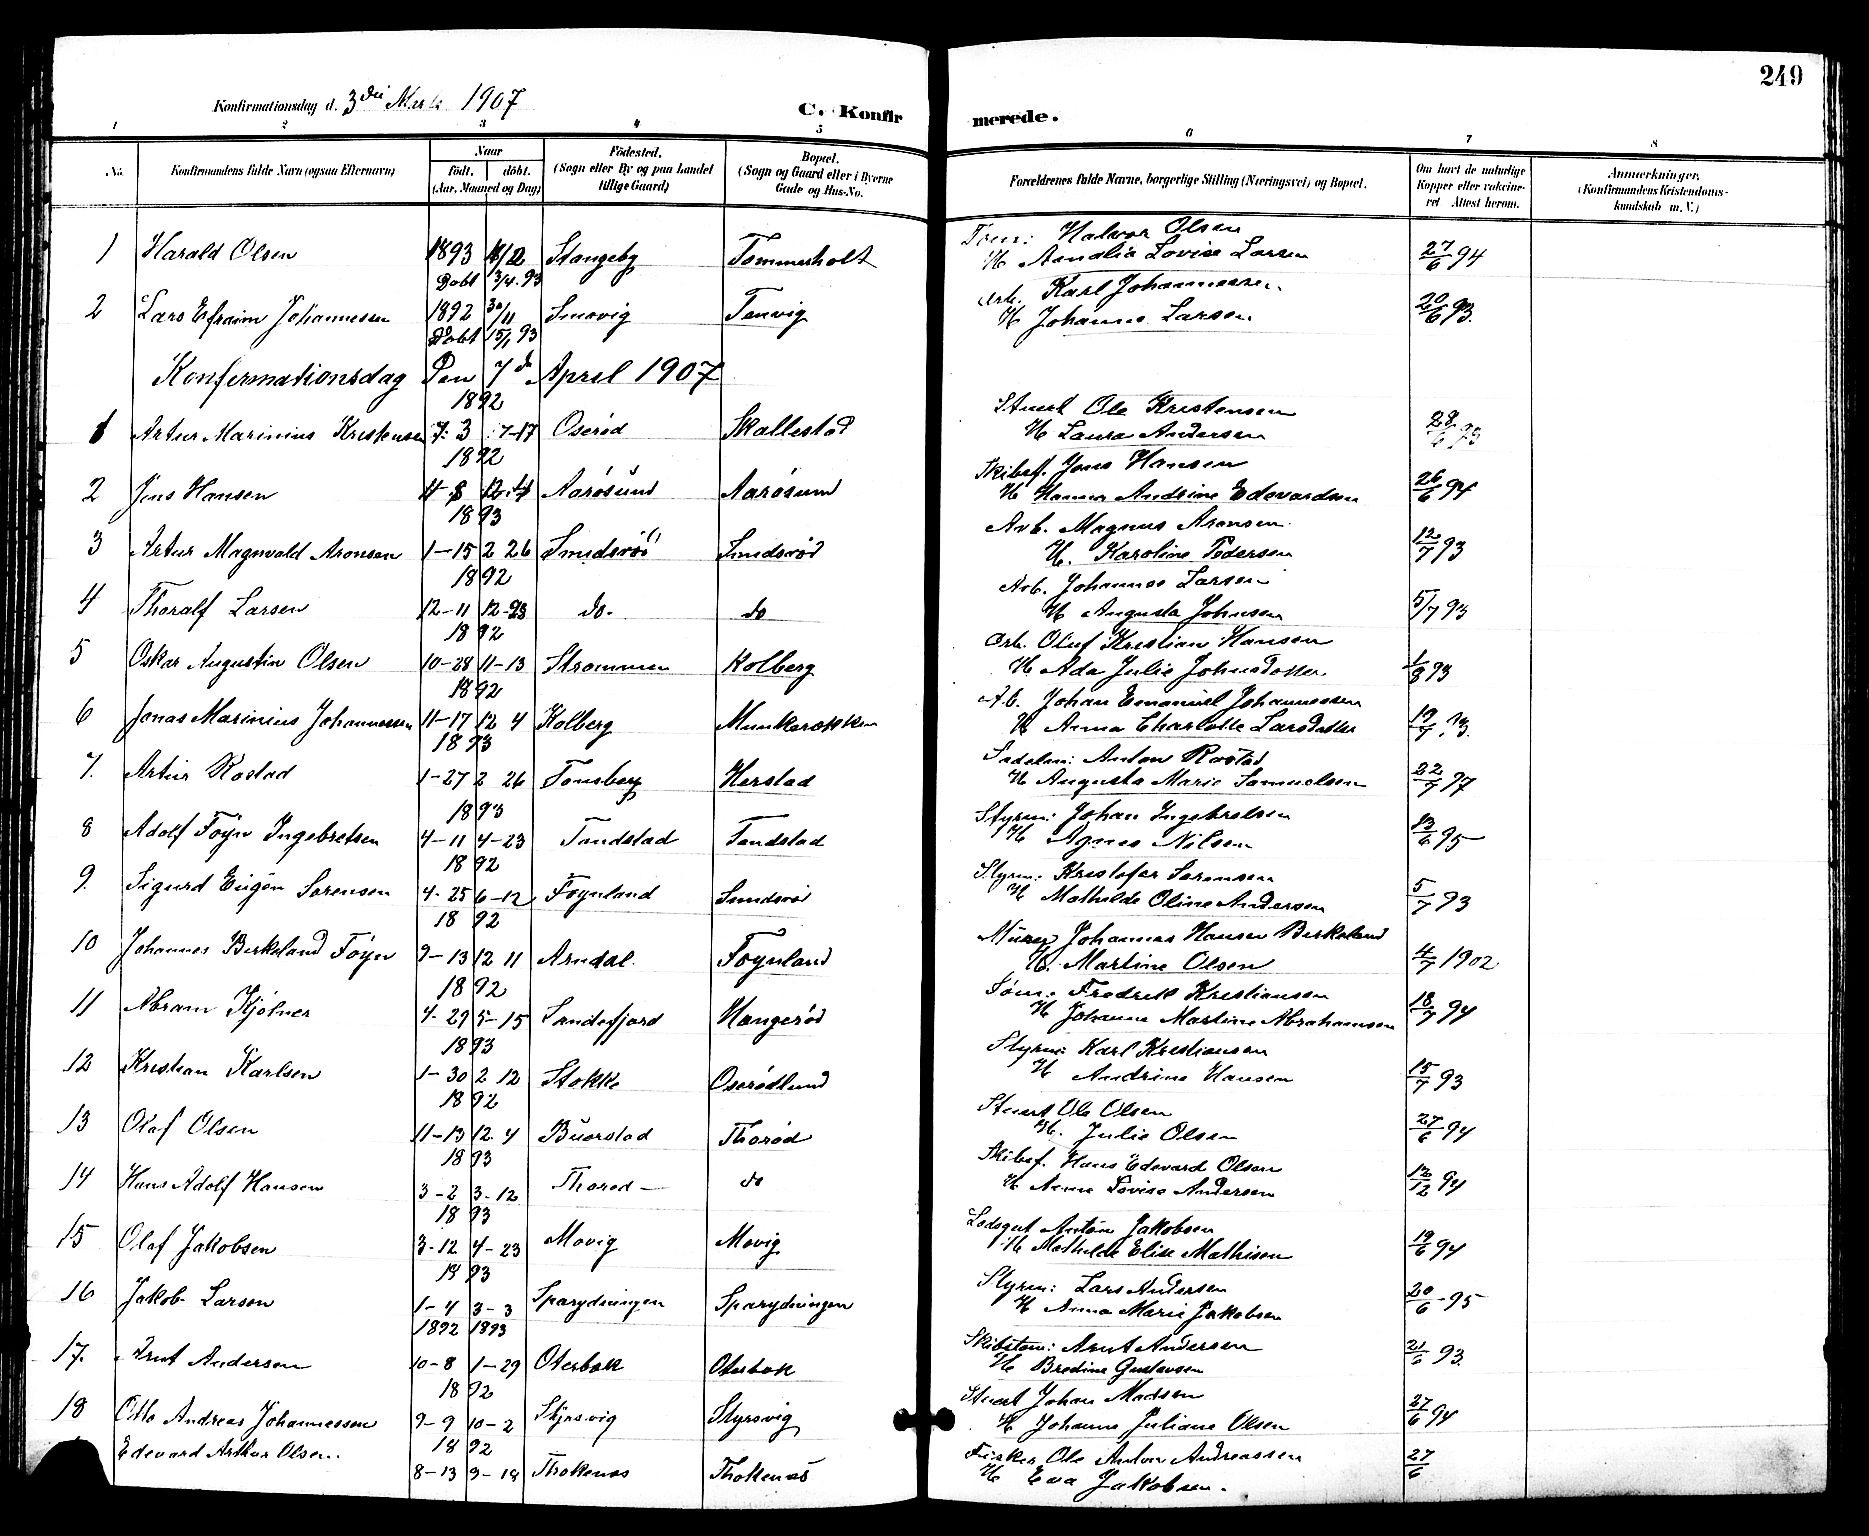 249
Konfirmationsdag d. 3die Marts 1907
C. Konfirmerede.
1 2 3 4 5 6 7 8
No.
Konfirmandens fulde Navn (ogsaa Efternavn)
Naar
födt. döbt.
(Aar, Maaned og Dag)
Födested.
(Sogn eller By og paa Landet
tillige Gaard)
Bopæl.
(Sogn og Gaard eller i Byerne
Gade og Hus-No.
Forældrenes fulde Navne, borgerlige Stilling (Næringsvei) og Bopæl.
Om havt de naturlige
Kopper eller vakcine-
ret Attest herom.
Anmerkninger.
(Konfirmandens Kristendoms-
kundskab m. V.)
1 Harald Olsen 1893 Stangeby Tommerholt Tøm: Halvor Olsen
Døbt 3/4. 93 H Amalia Lovise Larsen 27/6 94
2 Lars Efraim Johannesen 1892 30/11 Smovig Tenvig Arb. Karl Johannessen
Døbt 15/1 93 H Johanne Larsen 20/6 93.
Konfermationsdag Den 7de April 1907
1892
1 Artur Marinius Kristensen 7-3 7-17 Oserød Skallestad Stuert Ole Kristensen
H Laura Andersen
1892
2 Jens Hansen 12-4 Aarøsund Aarøsund Skibsf. Jens Hansen
H Hanna Andrine Edevardsen 26/6 94
1893
3 Artur Magnvald Aronsen 1-15 2 26 Smidsrød Smidsrød Arb. Magnus Aronsen
H. Karoline Pedersen 12/7 93
1892
4 Thoralf Larsen 12-11 12-28 do. do Arb. Johannes Larsen
H Augusta Johnsen 5/7 93
1892
5 Oskar Augustin Olsen 10-28 11-13 Strømmen Kolberg Arb. Oluf Kristian Hansen
H Ada Julie Johnsdotter 1/8 93
1892
6 Jonas Marinius Johannessen 11-17 12 4 Kolberg Munkerøkken Ab. Johan Emanuel Johannessen
H Anna Charlotte Larsdatter
1893
7. Artur Rostad 1-27 2 26 Tønsberg Herstad Sadelm: Anton Rostad
H Augusta Marie Samuelsen 22/7 97
1893
8 Adolf Føyn Ingebretsen 4-11 4-23 Tandstad Tandstad Styrm: Johan Ingebretsen
H Agnes Nilsen 13/6 95
1892
9. Sigurd Eugen Sørensen 4-25 6-12 Føynland Smidsrød Styrm: Kristofer Sørensen
H Mathilde Oline Andersen 5/7 93
1892
10 Johannes Birkeland Føyn 9-13 12 11 Arndal. Føynland Murer Johannes Hansen Birkeland
H. Martine Olsen 4/7 1902
1892
11 Abram Kjølner 4-29 5-15 Sandefjord Hangerød Tøm: Fredrik Kristiansen
H Johanne Martine Abrahamsen 18/7 94
1893
12 Kristian Karlsen 1-30 2 12 Stokke Oserødlund Styrm: Karl Kristiansen
H Andrine Hansen 15/7 93
1892
13 Olaf Olsen 11-13 12. 4 Buerstad Thorød Stuert Ole Olsen
H. Julie Olsen 27/6 94
1893
14 Hans Adolf Hansen 3-2 3-12 Thorød do Skibsf. Hans Edevard Olsen
H Anne Lovise Andersen 12/12 94
1893
15 Olaf Jakobsen 3-12 4-23 Movig Movig Lodsgut Anton Jakobsen
H Mathilde Elise Mathisen 19/6 94
1893
16 Jakob Larsen 1-4 3-3 Sparydningen Sparydningen Styrm: Lars Andersen
H Anna Marie Jakobsen 20/6-95
1892 1893
17. Arnt Andersen 10-8 1-29 Oterbæk Oterbæk Skibstøm: Arnt Andersen
H Bredine Gustavsen 21/6 93.
1892
18 Otto Andreas Johannessen 9-9 10-2 Styrsvig Styrsvig Stuert Johan Madsen
H Johanne Juliane Olsen 27/6 94
1892
Edevard Arthur Olsen. 8-13 9-18 Thokenæs Thokenæs Fisker Ole Anton Andreassen
H Eva Jakobsen. 27/6